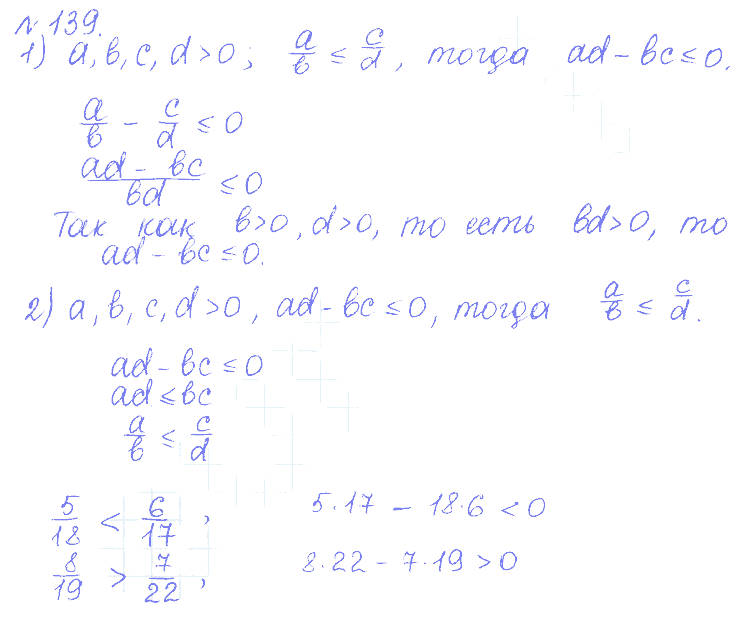 № 139.
1) a, b, c, d > 0; a/b ≤ c/d, тогда ad - bc ≤ 0.
a/b - c/d ≤ 0
(ad - bc)/bd ≤ 0
Так как b > 0, d > 0, то есть bd > 0, то
ad - bc ≤ 0.
2) a, b, c, d > 0, ad - bc ≤ 0, тогда a/b ≤ c/d.
ad - bc ≤ 0
ad ≤ bc
a/b ≤ c/d
5/18 < 6/17, 5·17 - 18·6 < 0
8/19 > 7/22, 8·22 - 7·19 > 0